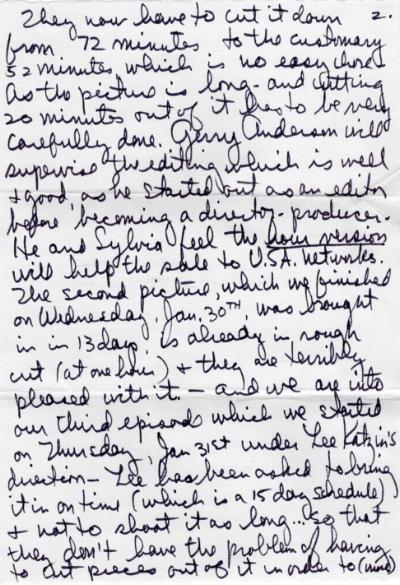 They now have to cut it down 2.
from 72 minutes to the customary
52 minutes, which is no easy chore
as the picture is long - and cutting
20 minutes out of it has to be very
carefully done. Gerry Anderson will
supervise the editing which is well
+ good, as he started out as an editor
before becoming a director-producer.
He and Sylvia feel the hour version
will help the sale to U.S.A. networks.
The second picture, which we finished
on Wednesday, Jan. 30TH, was brought
in in 13 days, is already in rough
cut (at one hour) + they are terribly
pleased with it. — and we are into
our third episode which we started
on Thursday, Jan 31st under Lee Katzin's
direction - Lee has been asked to bring
it in on time (which is a 15 day schedule)
+ not to shoot it as long... so that
they don't have the problem of having
to cut pieces out of it in order to